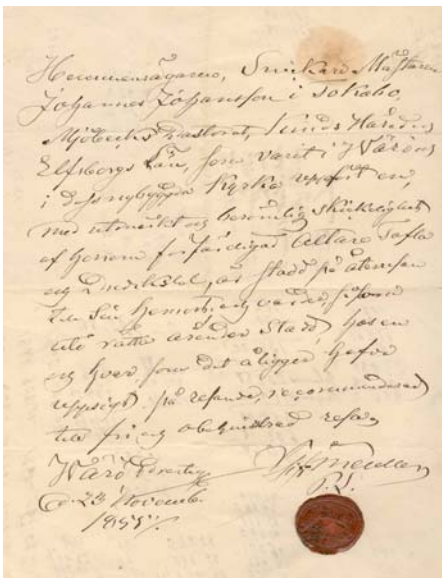 Hemmansägaren, Snickare Mästaren
Johannes Johansson i Sokabo,
Mjöbäcks Pastorat, Kinds Härad,
Elfsborgs Län, som varit i Wärö och
i dess nybyggda Kyrka uppfört en,
med utmärkt och berömlig skicklighet
af honom förfärdigad Altare Tafla
och Predikstol, är stadd på återresan
till sin hemort, och varder, såsom
uti rätta ärender stadd, hos en
och hvar, som det åligger hafva
uppsigt på resande, recommenderad
till fri och obehindrad resa,
Wärö
d. 23 Novemb.